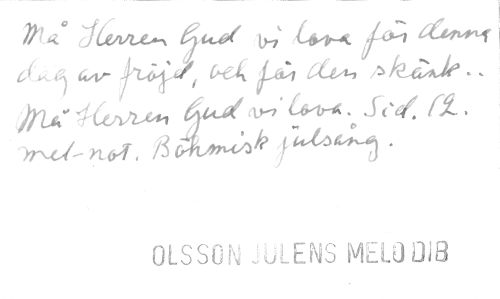 Må Herren Gud vi lova för denna
dag av fröjd, och för den skänk..
Må Herren Gud vi lova. Sid. 12.
mel-not. Böhmisk julsång.
OLSSON JULENS MELODIB